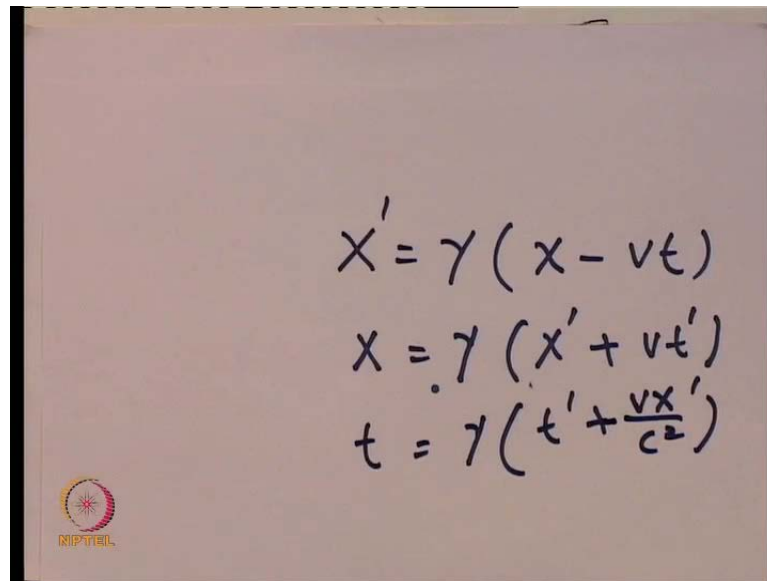 x' = γ ( x - vt )
x = γ ( x' + vt' )
t = γ ( t' + vx'/c² )
NPTEL